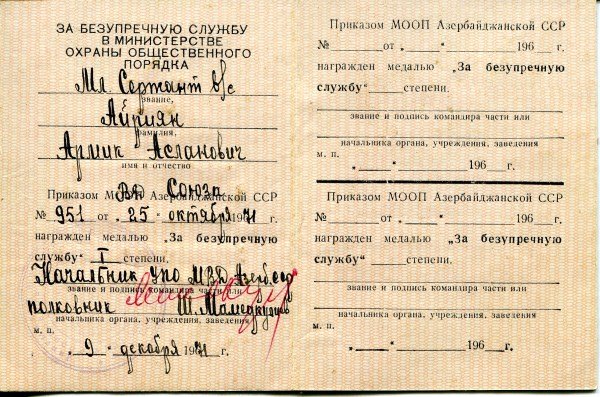 ЗА БЕЗУПРЕЧНУЮ СЛУЖБУ
В МИНИСТЕРСТВЕ
ОХРАНЫ ОБЩЕСТВЕННОГО
ПОРЯДКА
Мл. Сержант в/с
звание,
Айриян
фамилия,
Армик Асланович
имя и отчество
ВД Союза
Приказом МООП Азербайджанской ССР
№ 951 от „25“ октября 1971
награжден медалью „За безупречную
службу“ I степени.
Начальник УПО МВД Азерб. ССР
звание и подпись командира части или
полковник Ш.
начальника органа, учреждения, заведения
м. п.
„9“ декабря 1971 г.
Приказом МООП Азербайджанской ССР
№ от „ “ 196 г.
награжден медалью „За безупречную
службу“ степени.
звание и подпись командира части или
начальника органа, учреждения, заведения
м. п.
„ “ 196 г.
Приказом МООП Азербайджанской ССР
№ от „ “ 196 г.
награжден медалью „За безупречную
службу“ степени.
звание и подпись командира части или
начальника органа, учреждения, заведения
м. п.
„ “ 196 г.